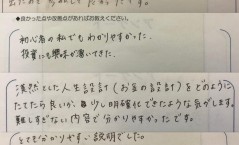 ●良かった点や改善点があればお教えください。
初心者の私でもわかりやすかった。
投資にも興味が湧いてきた。
漠然とした人生設計(お金の設計)をどのように
たてたら良いか、少し明確化できたような気がします。
難しすぎない内容で分かりやすかったです。
とても分かりやすい説明でした。